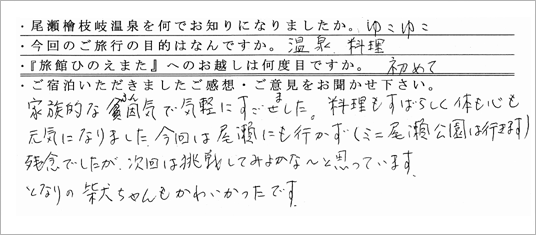 ・尾瀬檜枝岐温泉を何でお知りになりましたか。ゆこゆこ
・今回のご旅行の目的はなんですか。温泉、料理
・『旅館ひのえまた』へのお越しは何度目ですか。初めて
・ご宿泊いただきましたご感想・ご意見をお聞かせ下さい。
家族的な雰囲気で気軽にすごせました。料理もすばらしく体も心も
元気になりました。今回は尾瀬にも行かず(ミニ尾瀬公園は行きます)
残念でしたが、次回は挑戦してみよかな〜と思っています。
となりの柴犬ちゃんもかわいかったです。